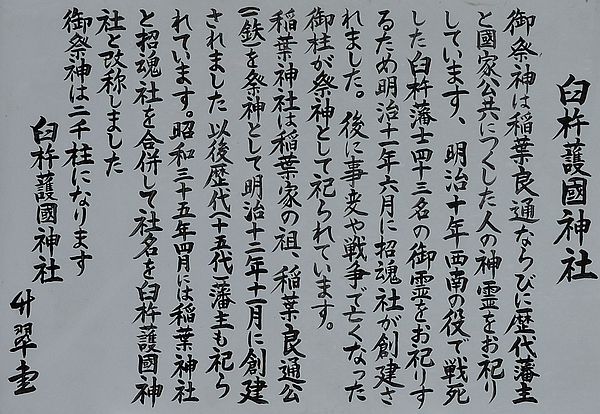 臼杵護國神社
御祭神は稲葉良通ならびに歴代藩主
と國家公共につくした人の神霊をお祀り
しています、明治十年西南の役で戦死
した臼杵藩士四十三名の御霊をお祀りす
るため明治十一年六月に招魂社が創建さ
れました。後に事変や戦争で亡くなった
御柱が祭神として祀られています。
稲葉神社は稲葉家の祖、稲葉良通公
(一鉄)を祭神として明治十二年十一月に創建
されました 以後歴代(十五代)藩主も祀ら
れています。昭和三十五年四月には稲葉神社
と招魂社を合併して社名を臼杵護國神
社と改称しました
御祭神は二千柱になります
臼杵護國神社
翠